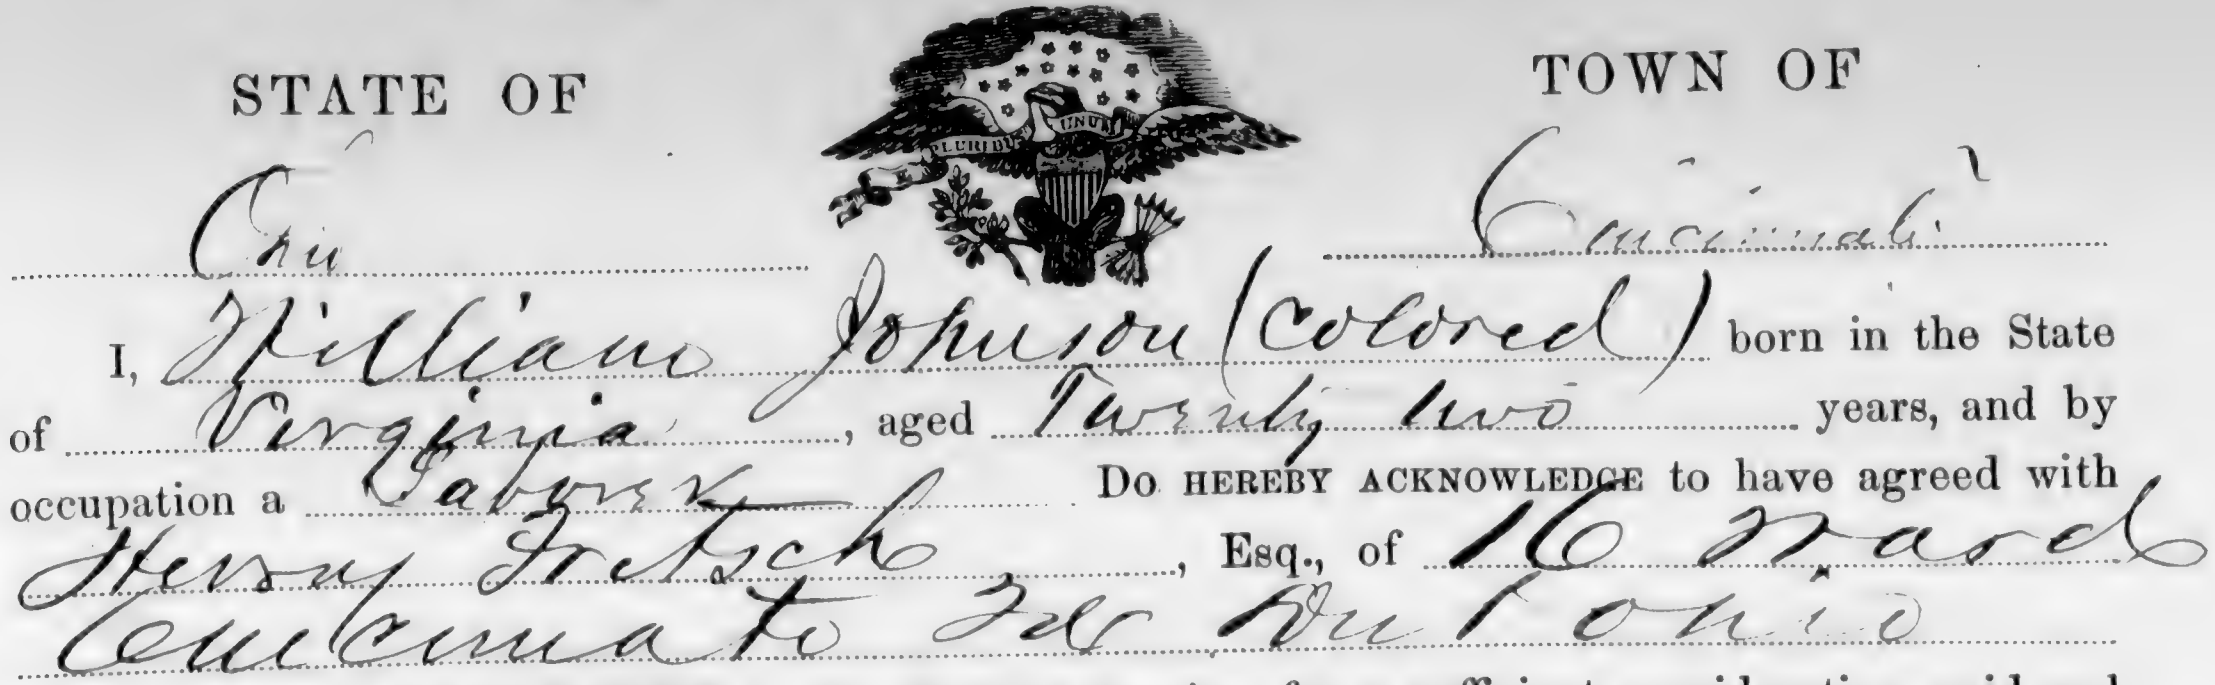 STATE OF TOWN OF
PLURIBUS UNUM
Ohio Cincinnati
I, William Johnson (Colored) born in the State
of Virginia, aged Twenty two years, and by
occupation a Laborer Do HEREBY ACKNOWLEDGE to have agreed with
Henry Fretsch, Esq., of 16 Ward
Cincinnati 2d Dist Ohio